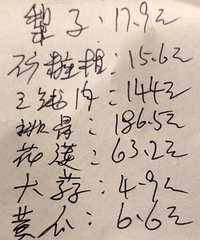 梨子：17.9元
砂糖桔：15.6元
三线肉：144元
排骨：186.5元
花莲：63.2元
大蒜：4.9元
黄瓜：6.6元